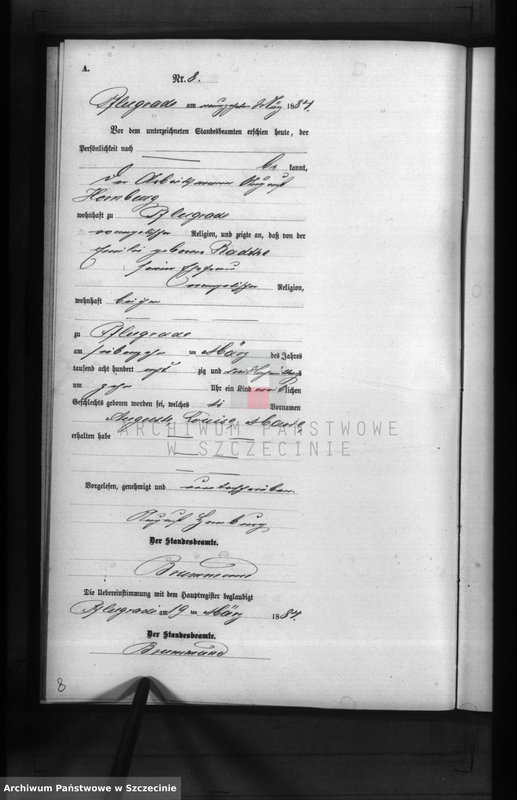 A.
Nr. 8.
Pflugrade am neunzehnten März 1884.
Vor dem unterzeichneten Standesbeamten erschien heute, der
Persönlichkeit nach
be kannt,
der Arbeitsmann August
Homburg
wohnhaft zu Pflugrade
evangelischer Religion, und zeigte an, daß von der
Emilie geborne Radtke
seiner Ehefrau
evangelischer Religion,
wohnhaft bei ihm
zu Pflugrade
am siebenzehn ten März des Jahres
tausend acht hundert acht zig und vier
um zehn Uhr ein Kind weib lichen
Geschlechts geboren worden sei, welches die Vornamen
Auguste Louise Marie
erhalten habe
Vorgelesen, genehmigt und unterschrieben
August Homburg
Der Standesbeamte.
Brummund
Die Uebereinstimmung mit dem Hauptregister beglaubigt
Pflugrade am 19 ten März 1884.
Der Standesbeamte.
Brummund
8
ARCHIWUM PAŃSTWOWE
W SZCZECINIE
Archiwum Państwowe w Szczecinie